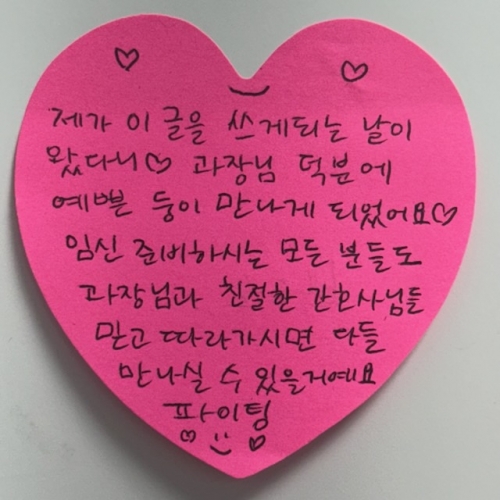 제가 이 글을 쓰게되는 날이
왔다니♡ 과장님 덕분에
예쁜 둥이 만나게 되었어요♡
임신 준비하시는 모든 분들도
과장님과 친절한 간호사님들
믿고 따라가시면 다들
만나실 수 있을거예요
퐈이팅